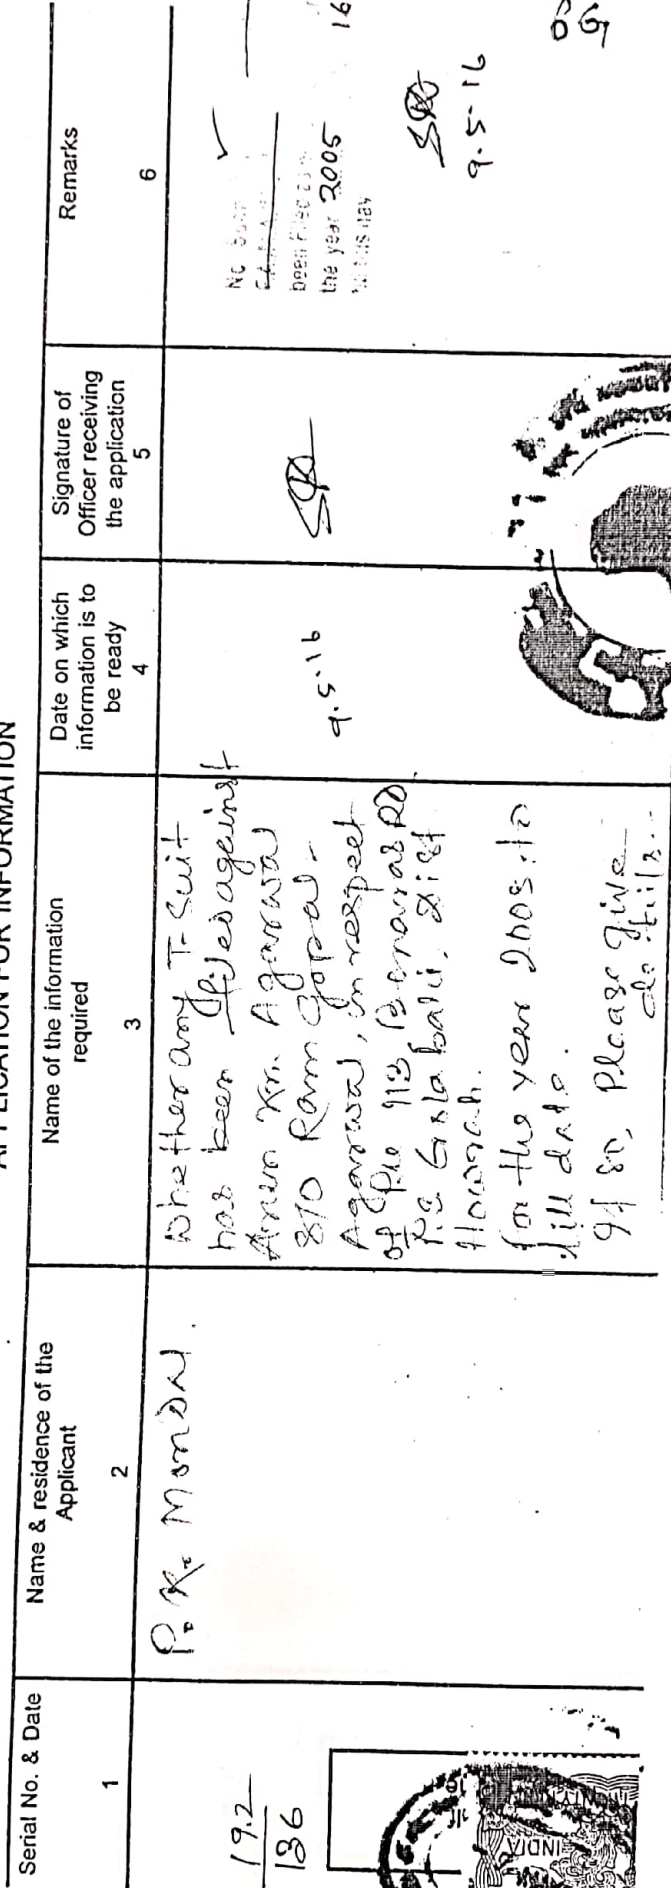 APPLICATION FOR INFORMATION
Serial No. & Date
1
Name & residence of the
Applicant
2
Name of the information
required
3
Date on which
information is to
be ready
4
Signature of
Officer receiving
the application
5
Remarks
6
192
136
P. K. Mondal.
Whether any T. Suit
has been filed against
Arun Kr. Agarwal
S/O Ram Gopal
Agarwal, in respect
of Pre 113, Benaras RD.
P.S Golabari, Dist
Howrah.
for the year 2005 to
till date.
If so, Please give
details..
9.5.16
No
been filed
the year 2005
16
9.5.16
INDIA